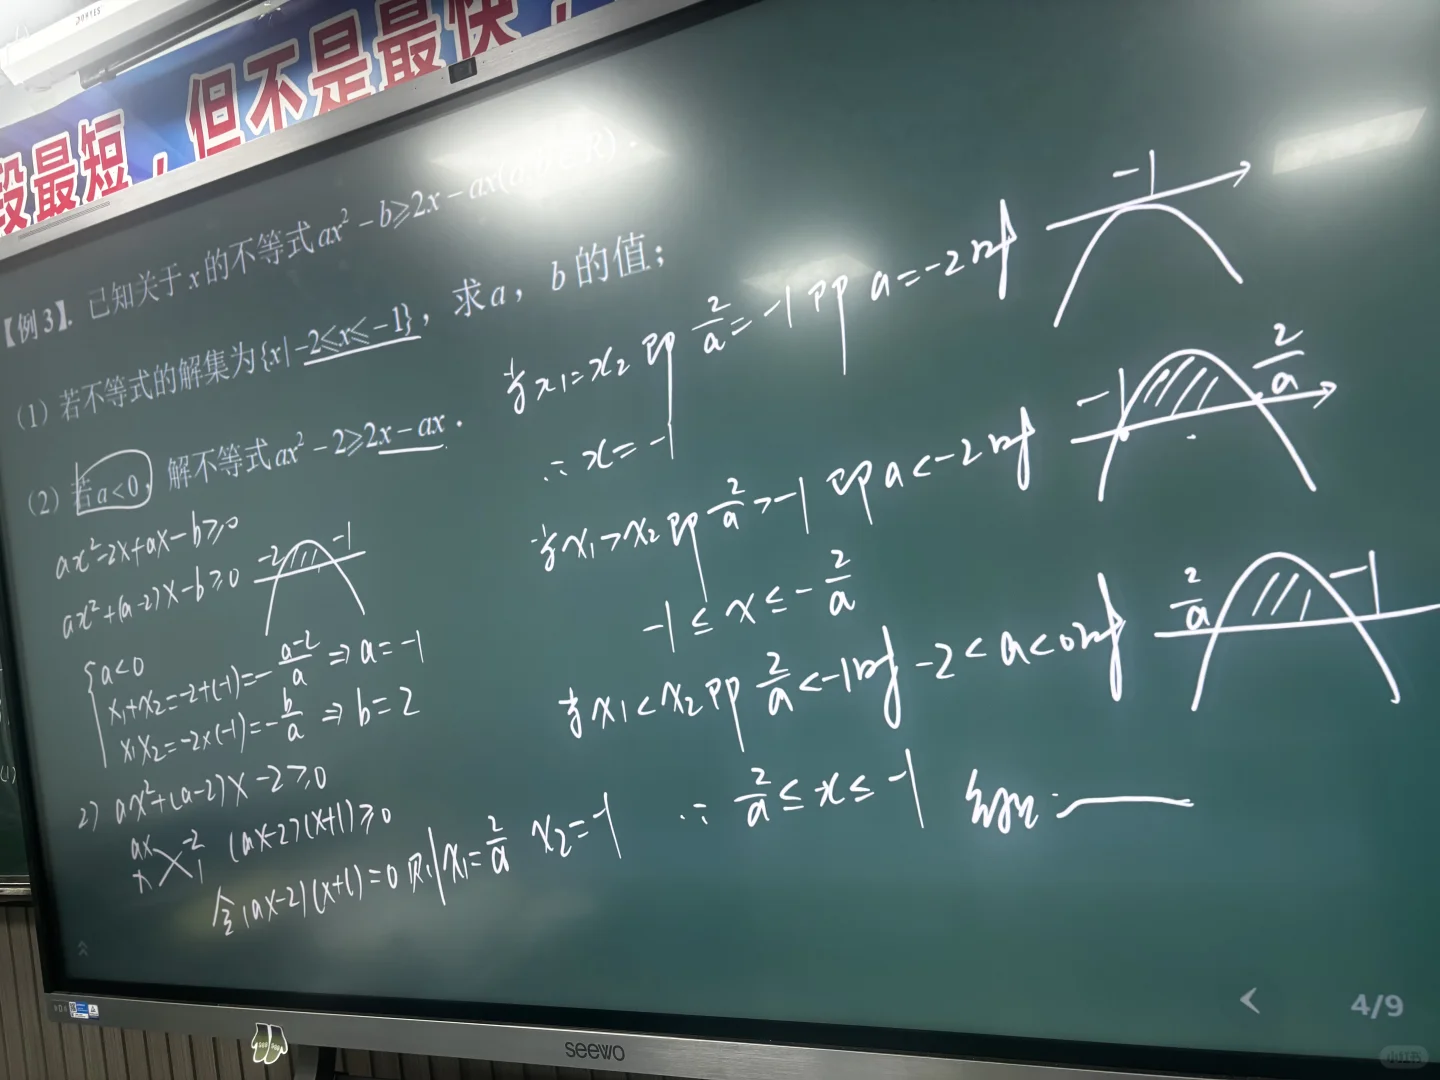 段最短，但不是最快，
【例3】. 已知关于x的不等式ax²－b≥2x－ax(a, R).
(1) 若不等式的解集为{x|－2≤x≤－1}，求a，b的值；
(2) 若a<0，解不等式ax²－2≥2x－ax．
ax²-2x+ax-b≥0
ax²+(a-2)x-b≥0
-2 -1
a<0
x₁+x₂=-2+(-1)=-\frac{a-2}{a} ⇒ a=-1
x₁x₂=-2×(-1)=-\frac{b}{a} ⇒ b=2
2) ax²+(a-2)x-2≥0
ax -2
x 1
(ax-2)(x+1)≥0
令(ax-2)(x+1)=0 则x₁=\frac{2}{a} x₂=-1
当x₁=x₂即\frac{2}{a}=-1即a=-2时
-1
∴x=-1
当x₁>x₂即\frac{2}{a}>-1即a<-2时
-1 \frac{2}{a}
-1≤x≤-\frac{2}{a}
当x₁<x₂即\frac{2}{a}<-1时-2<a<0时
\frac{2}{a} -1
∴\frac{2}{a}≤x≤-1
综上:
4/9
seewo